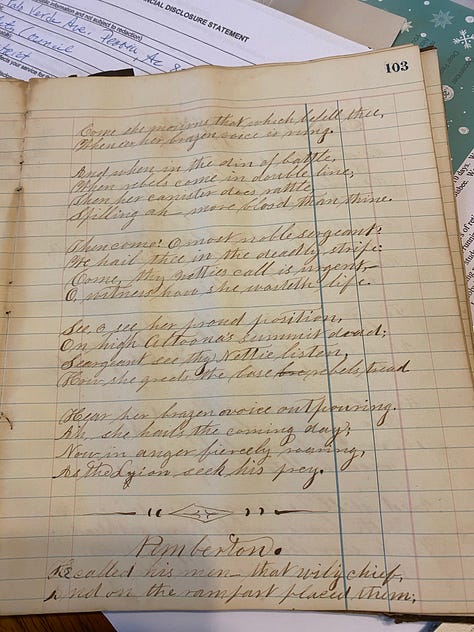 FINANCIAL DISCLOSURE STATEMENT
Council
103
Come she mourns that which befell thee,
When on her brazen voice is rung.
And when in the din of battle,
When rebels come in double line,
Then her canister does rattle,
Spilling ah - more blood than thine.
Then come! O most noble sergeant!
We hail thee in the deadly strife
Come, thy Netties call is urgent,
O, witness how she wasteth life.
See, o, see her proud position,
On high Altoona's summit dread;
Seargeant see thy Nettie listen,
How she greets the base rebels tread
Hear her brazen voice outpouring.
Ah, she hails the coming day;
Now in anger fiercely roaring,
As the Lyion seek his prey.
Pemberton.
He called his men - that wily chief,
And on the rampart placed them;